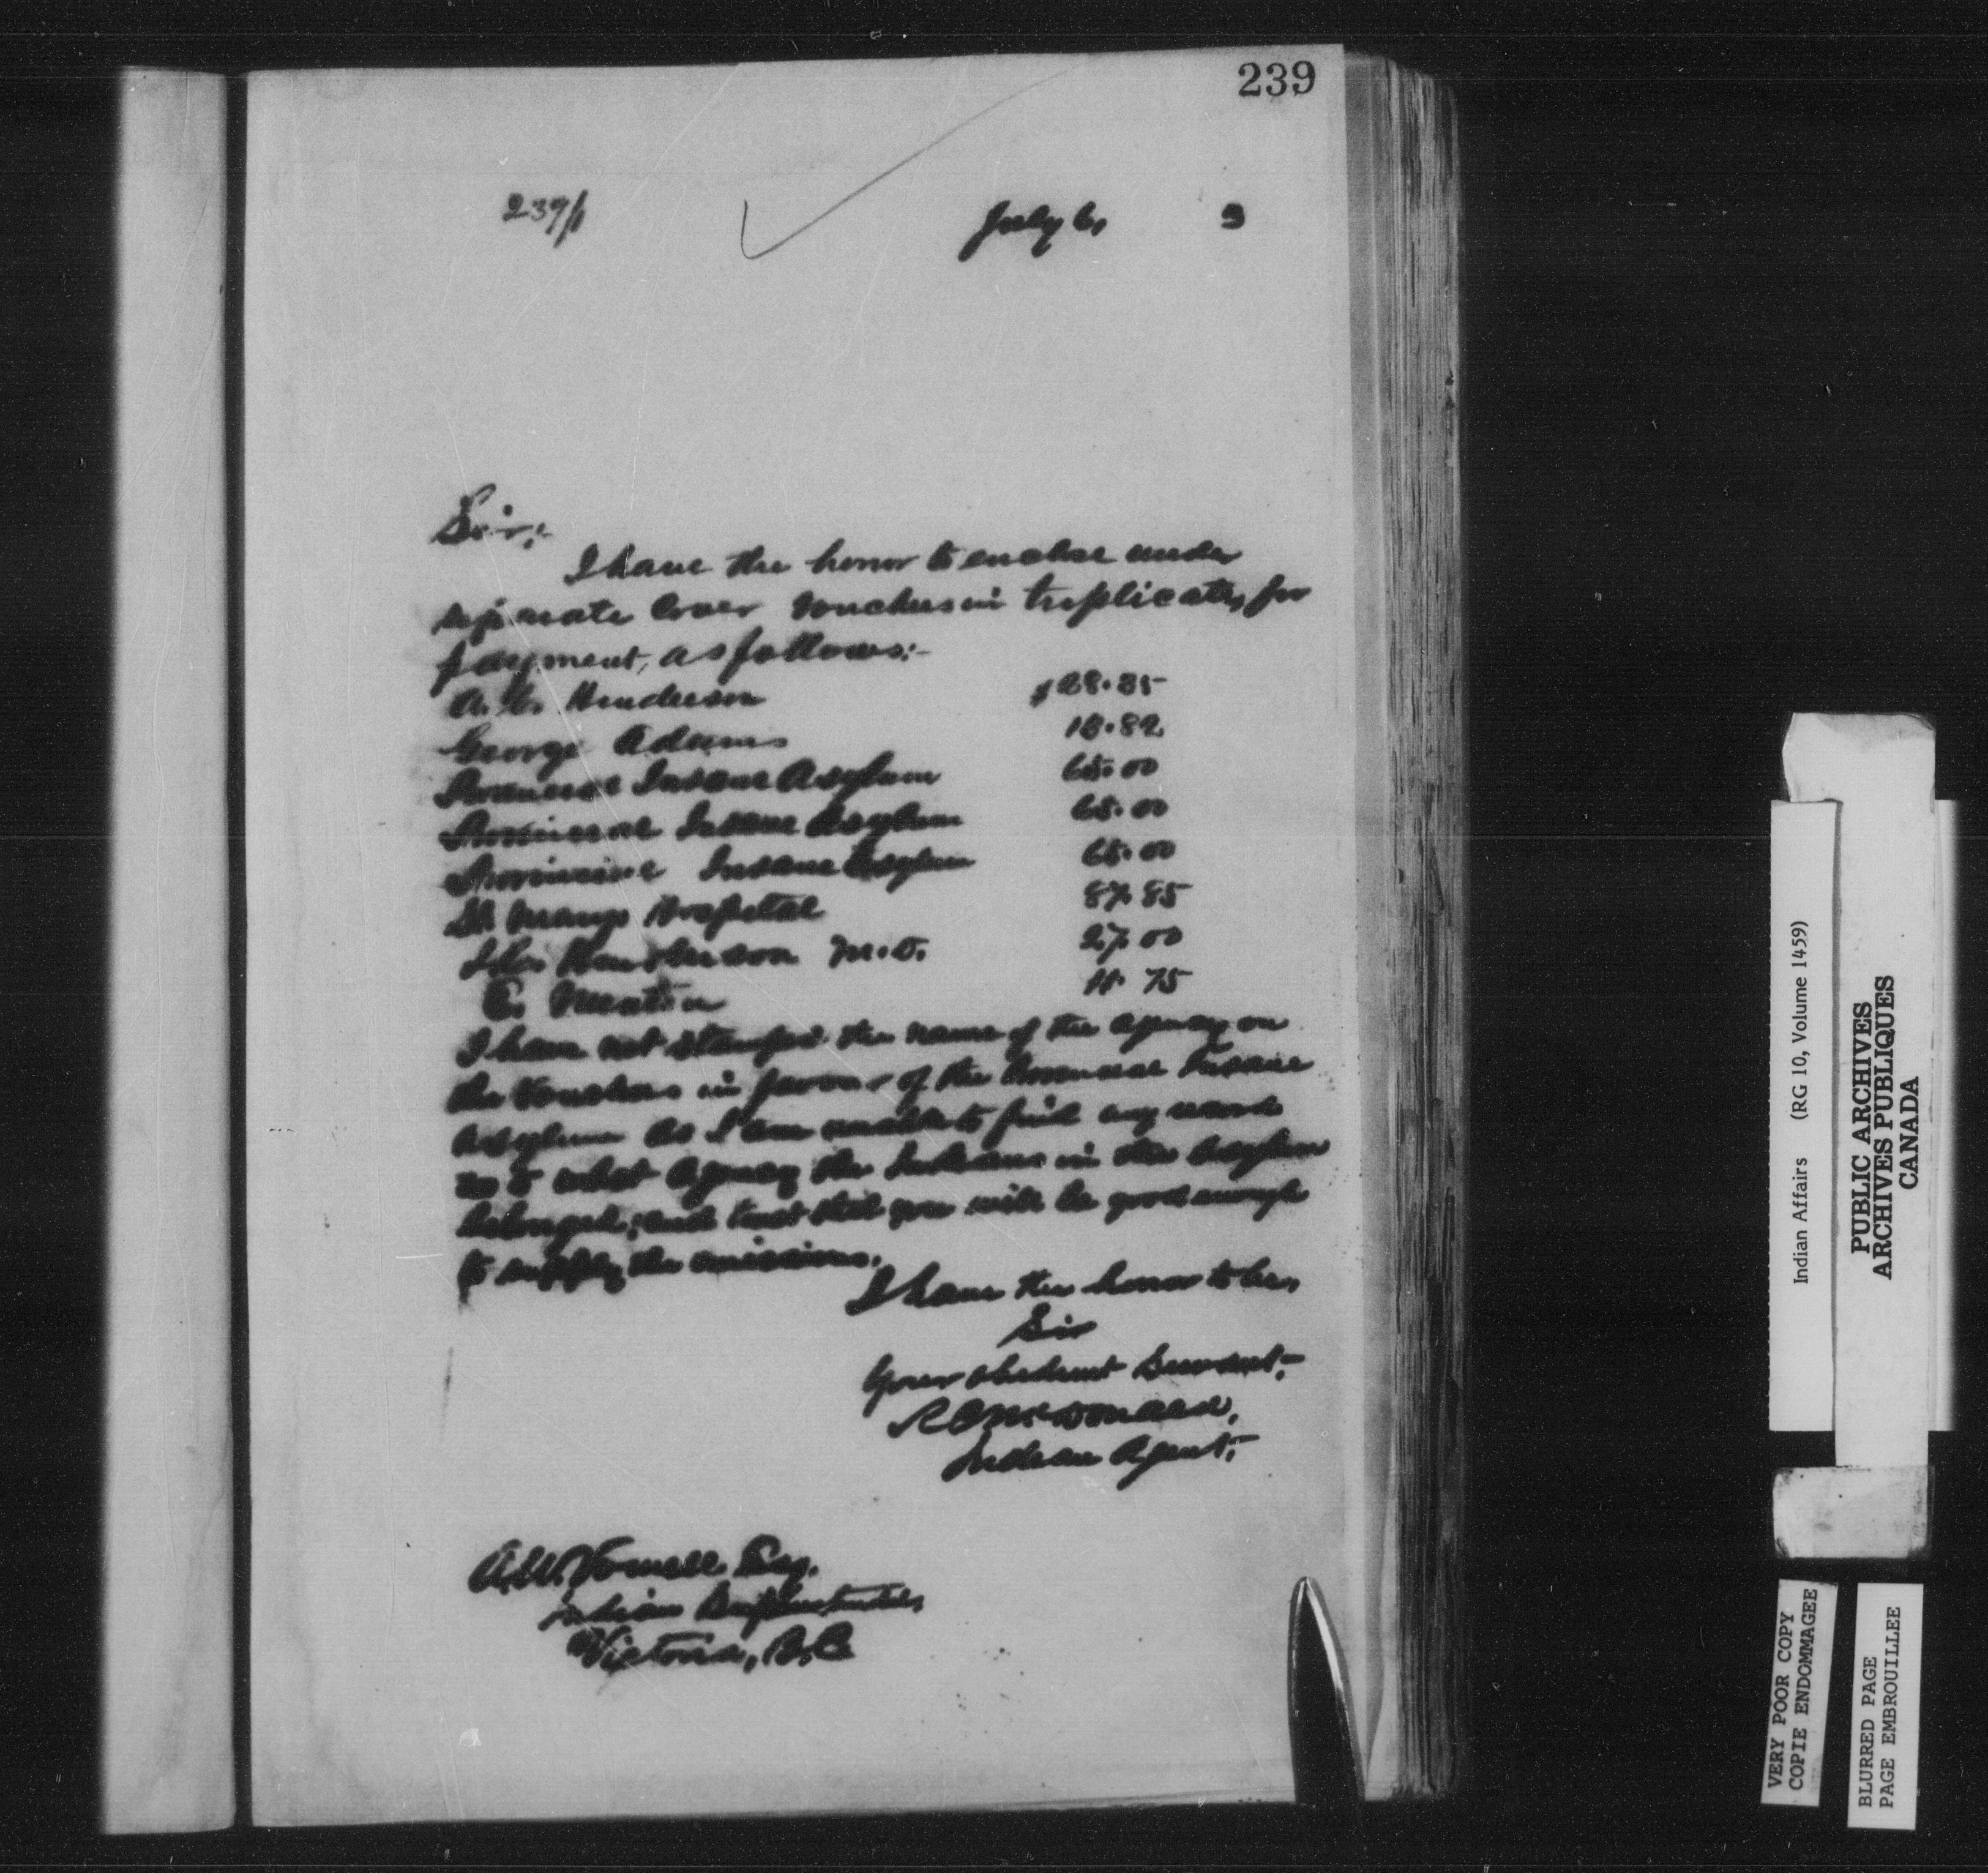 239
239/1
July 6, 3
Sir:
I have the honor to enclose under
separate cover vouchers in triplicate, for
payment, as follows:-
A. C. Henderson $28.35
George Adams
Provincial Insane Asylum 65.00
Provincial Insane Asylum 65.00
Provincial Insane Asylum 65.00
St. Mary's Hospital 87.85
Henderson M.D. 27.00
E. 75
I have not stamped the name of the agency on
the vouchers in favour of the Provincial Insane
Asylum as I am unable to find any record
as to what Agency the Indians in the Asylum
belonged, and trust that you will be good enough
to supply the omissions.
I have the honor to be,
Sir
Your obedient Servant,
R C McDonald,
Indian Agent,
A.W. Vowell Esq.
Indian Superintendent,
Victoria, B.C.
Indian Affairs (RG 10, Volume 1459)
PUBLIC ARCHIVES
ARCHIVES PUBLIQUES
CANADA
VERY POOR COPY
COPIE ENDOMMAGEE
BLURRED PAGE
PAGE EMBROUILLEE